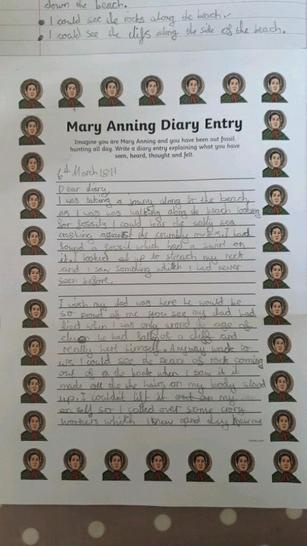 down the beach.
• I could see the rocks along the beach.
• I could see the clifs along the side of the beach.
Mary Anning Diary Entry
Imagine you are Mary Anning and you have been out fossil
hunting all day. Write a diary entry explaining what you have
seen, heard, thought and felt.
6th March 1811
Dear diary,
I was taking a along to the beach
as I was walking along the beach looking
for fossils I could hear the salty sea
against the crumbly I had
found a fossil which had a on
it. I looked up to strech my neck
and I saw somthing which I had never
seen before.
I wish my dad was here he would be
so proud of me you see my dad had
died when I was only the age of
he had of a cliff and
really hurt himself. Anyway back to
I could see the of rock coming
out of the when I saw it it
made all the hairs on my body stood
up. I couldn't lift it on my
own self so I called over some
workers which I and they